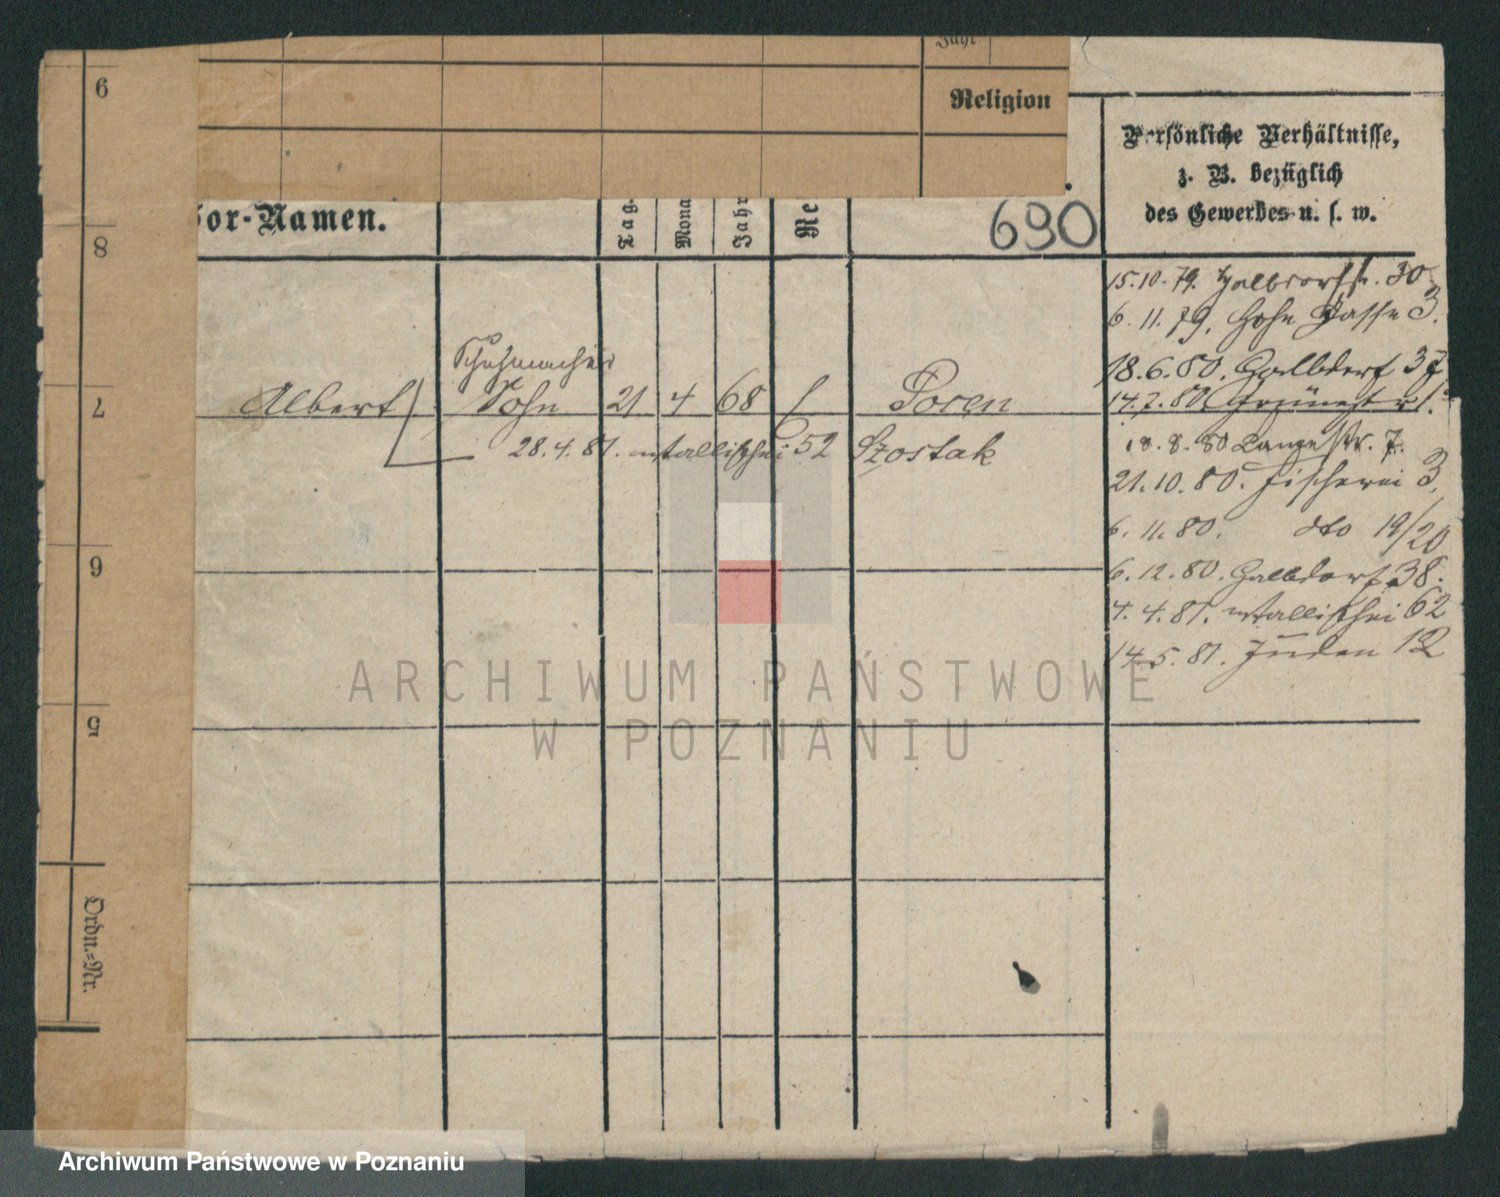 9
8
7
6
5
Ordn.-Nr.
Jahr
Religion
or-Namen.
Tag.
Mona
Jahr
Re
690
Persönliche Verhältnisse,
z. B. bezüglich
des Gewerbes u. s. w.
15.10.79. Halbdorfstr. 30
6. 11. 79. Hohe Gasse 3.
18.6.80. Halbdorf 37
14.7.80.
18.8.80 Langestr. 7.
21.10.80. Fischerei 3.
6. 11. 80. dto 19/20
6.12.80. Halbdorf 38.
4.4.81. Wallischei 62
14.5.81. Juden 12
Schuhmacher
Albert Sohn 21 4 68 Posen
28.4.81. Wallischei 52 Szostak
ARCHIWUM PAŃSTWOWE
W POZNANIU
Archiwum Państwowe w Poznaniu